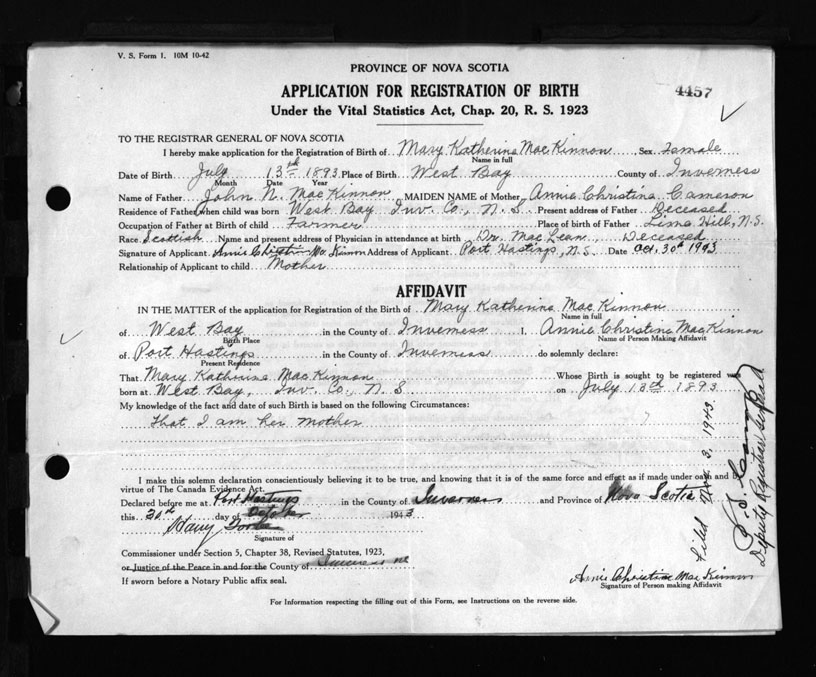 V. S. Form 1. 10M 10-42
PROVINCE OF NOVA SCOTIA
APPLICATION FOR REGISTRATION OF BIRTH
4457
Under the Vital Statistics Act, Chap. 20, R. S. 1923
TO THE REGISTRAR GENERAL OF NOVA SCOTIA
I hereby make application for the Registration of Birth of Mary Katherine MacKinnon, Sex Female
Name in full
Date of Birth July 13th 1893 Place of Birth West Bay County of Inverness
Month Date Year
Name of Father John N. MacKinnon MAIDEN NAME of Mother Annie Christina Cameron
Residence of Father when child was born West Bay Inv. Co., N. S. Present address of Father Deceased
Occupation of Father at Birth of child Farmer Place of birth of Father Lime Hill, N.S.
Race Scottish Name and present address of Physician in attendance at birth Dr. MacLean, Deceased
Signature of Applicant Annie Christine McKinnon Address of Applicant Port Hastings, N.S. Date Oct. 30th 1943
Relationship of Applicant to child Mother
AFFIDAVIT
IN THE MATTER of the application for Registration of the Birth of Mary Katherine MacKinnon
Name in full
of West Bay in the County of Inverness I, Annie Christina MacKinnon
Birth Place Name of Person Making Affidavit
of Port Hastings in the County of Inverness do solemnly declare:
Present Residence
That Mary Katherine MacKinnon Whose Birth is sought to be registered was
born at West Bay, Inv. Co. N. S. on July 13th 1893
My knowledge of the fact and date of such Birth is based on the following Circumstances:
That I am her mother
I make this solemn declaration conscientiously believing it to be true, and knowing that it is of the same force and effect as if made under oath and by
virtue of The Canada Evidence Act.
Declared before me at Port Hastings in the County of Inverness and Province of Nova Scotia
this 30th day of October 1943
Harry
Signature of
Commissioner under Section 5, Chapter 38, Revised Statutes, 1923,
or Justice of the Peace in and for the County of Inverness
If sworn before a Notary Public affix seal.
Annie Christine MacKinnon
Signature of Person making Affidavit
For Information respecting the filling out of this Form, see Instructions on the reverse side.
Filed Nov. 3, 1943
Deputy Registrar General